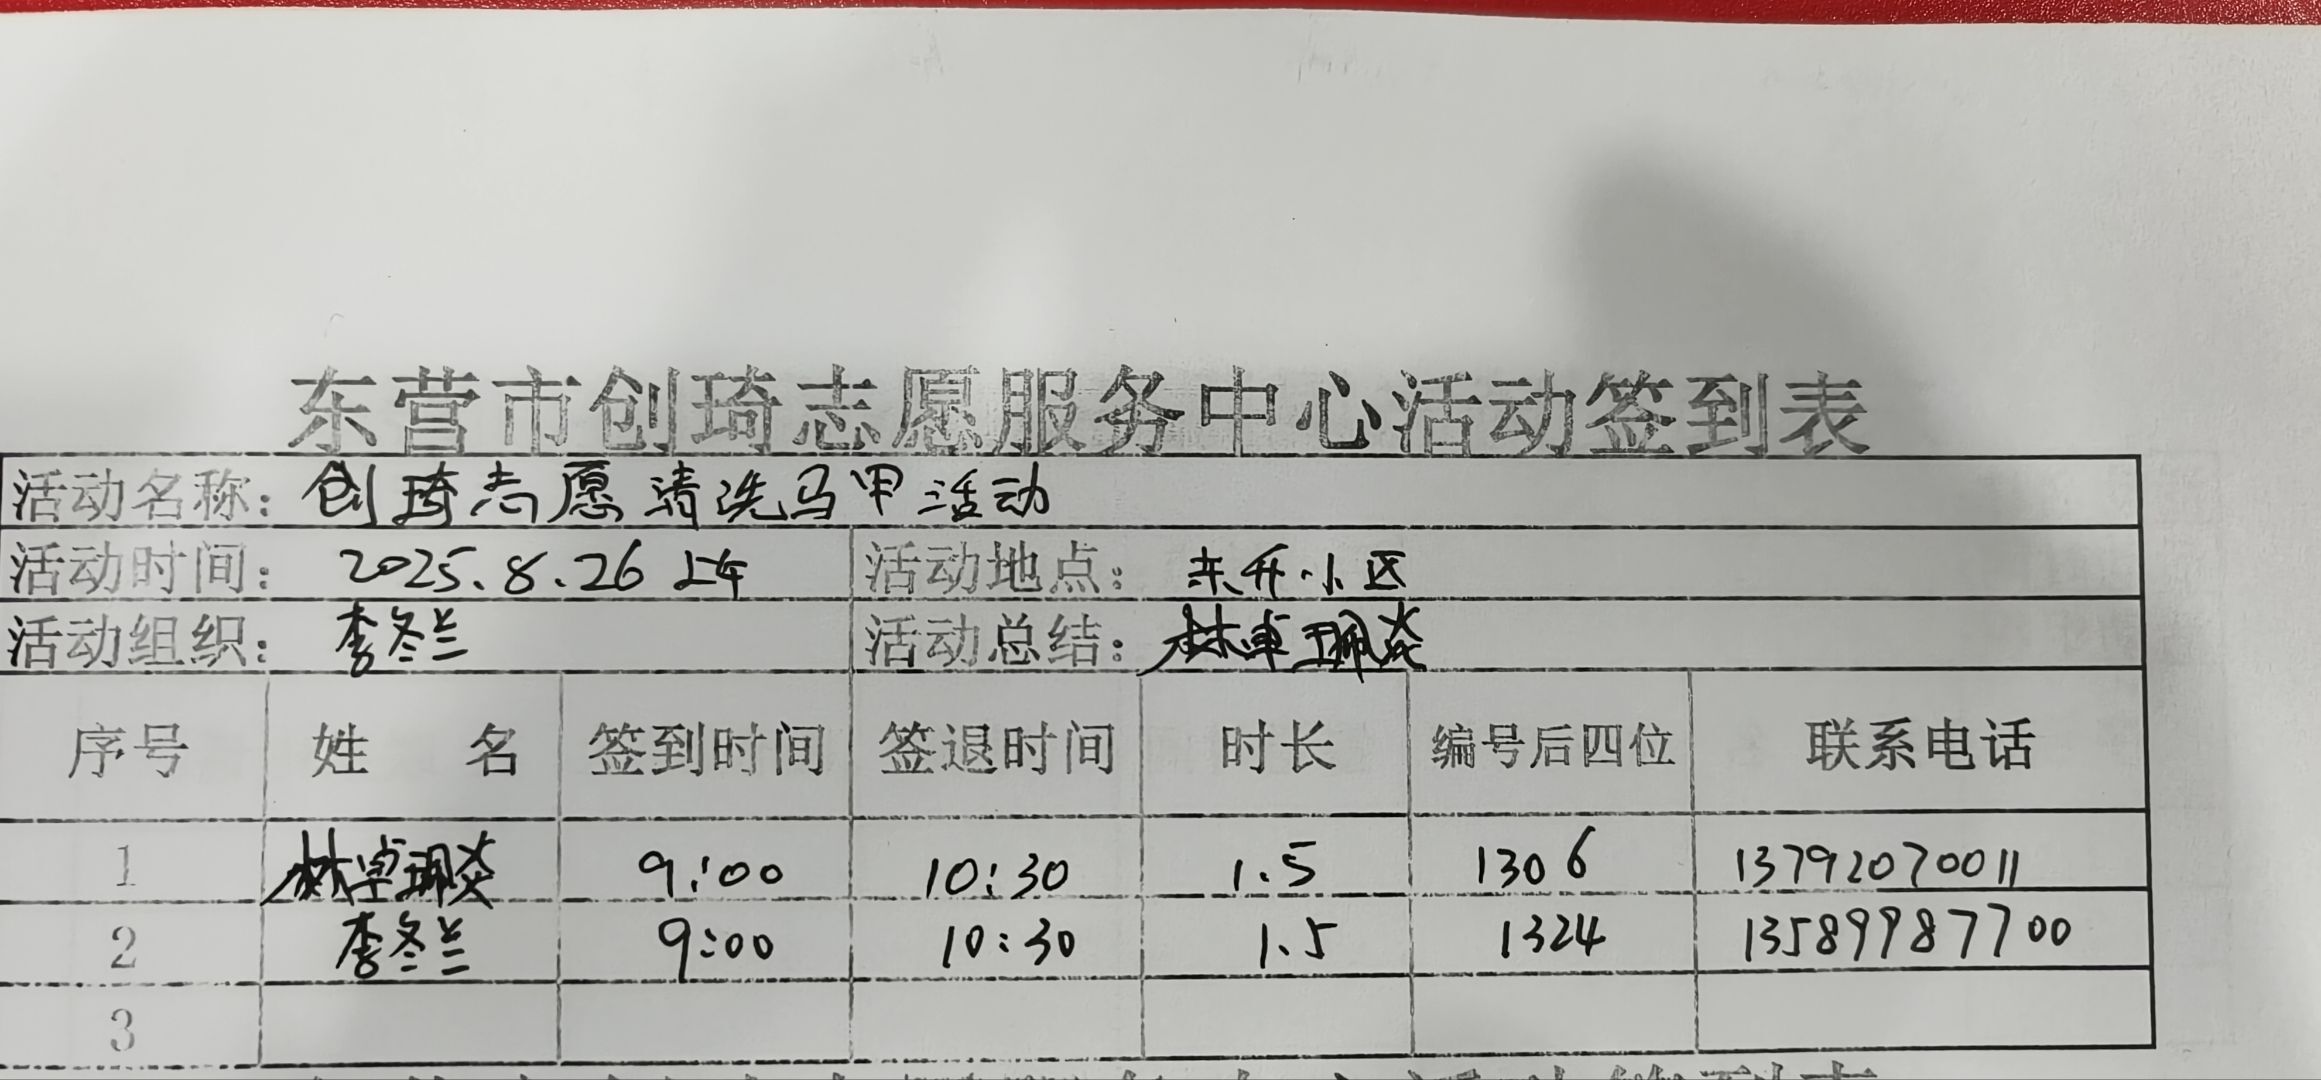 东营市创琦志愿服务中心活动签到表
活动名称: 创琦志愿清洗马甲活动
活动时间: 2025.8.26 上午 活动地点: 东升小区
活动组织: 李冬兰 活动总结: 林卓珮炎
序号 姓 名 签到时间 签退时间 时长 编号后四位 联系电话
1 林卓珮炎 9:00 10:30 1.5 1306 13792070011
2 李冬兰 9:00 10:30 1.5 1324 13589987700
3